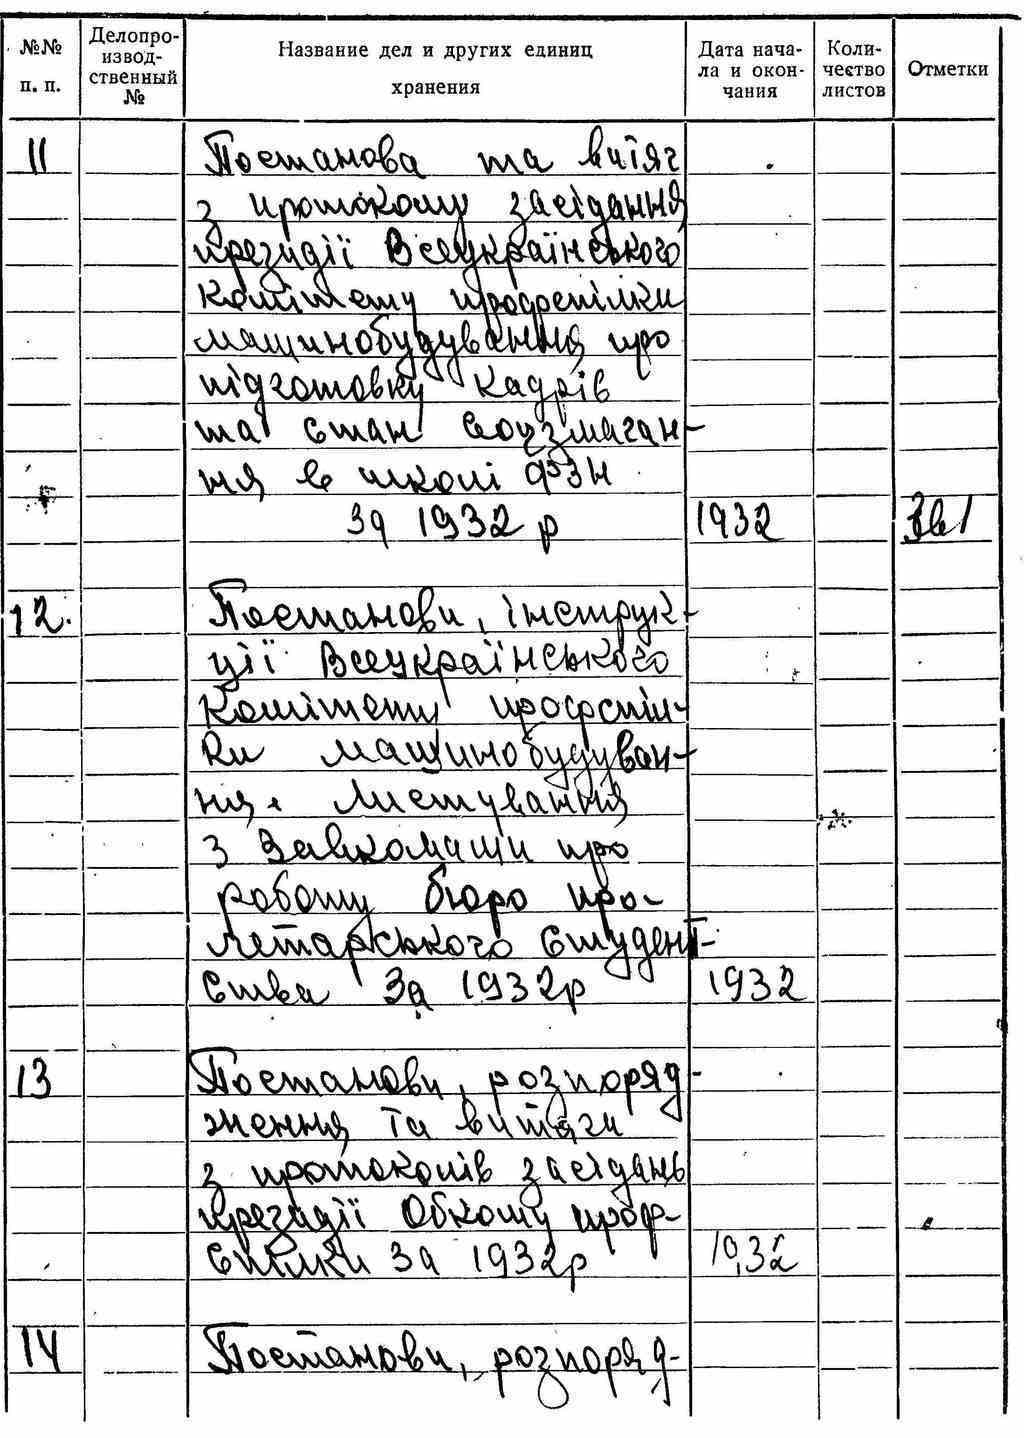 №№ п. п.
Делопроизводственный №
Название дел и других единиц хранения
Дата начала и окончания
Количество листов
Отметки
11 Постанова та витяг
з протокому засідання
президії Всеукраїнського
комітету профспілки
машинобудування про
підготовку кадрів
та стан соцзмаган-
ня в школі ФЗН
за 1932 р 1932
12. Постанови, інструк-
ції Всеукраїнського
комітету профспіл-
ки машинобудуван-
ня. Листування
з Завкомаши про
роботу бюро про-
летарського студент-
ства за 1932р 1932
13 Постанови, розпоряд-
ження та витяги
з протоколів засідань
президії Обкому проф-
спілки за 1932р 1932
14 Постанови, розпоряд-